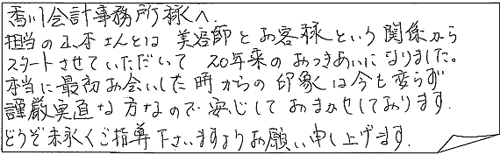 香川会計事務所様へ.
担当の正木さんとは 美容師とお客様という関係から
スタートさせていただいて 20年来のおつきあいになりました。
本当に最初お会いした時からの印象は今も変らず
謹厳実直な方なので安心しておまかせしております.
どうぞ末永くご指導下さいますようお願い申し上げます.